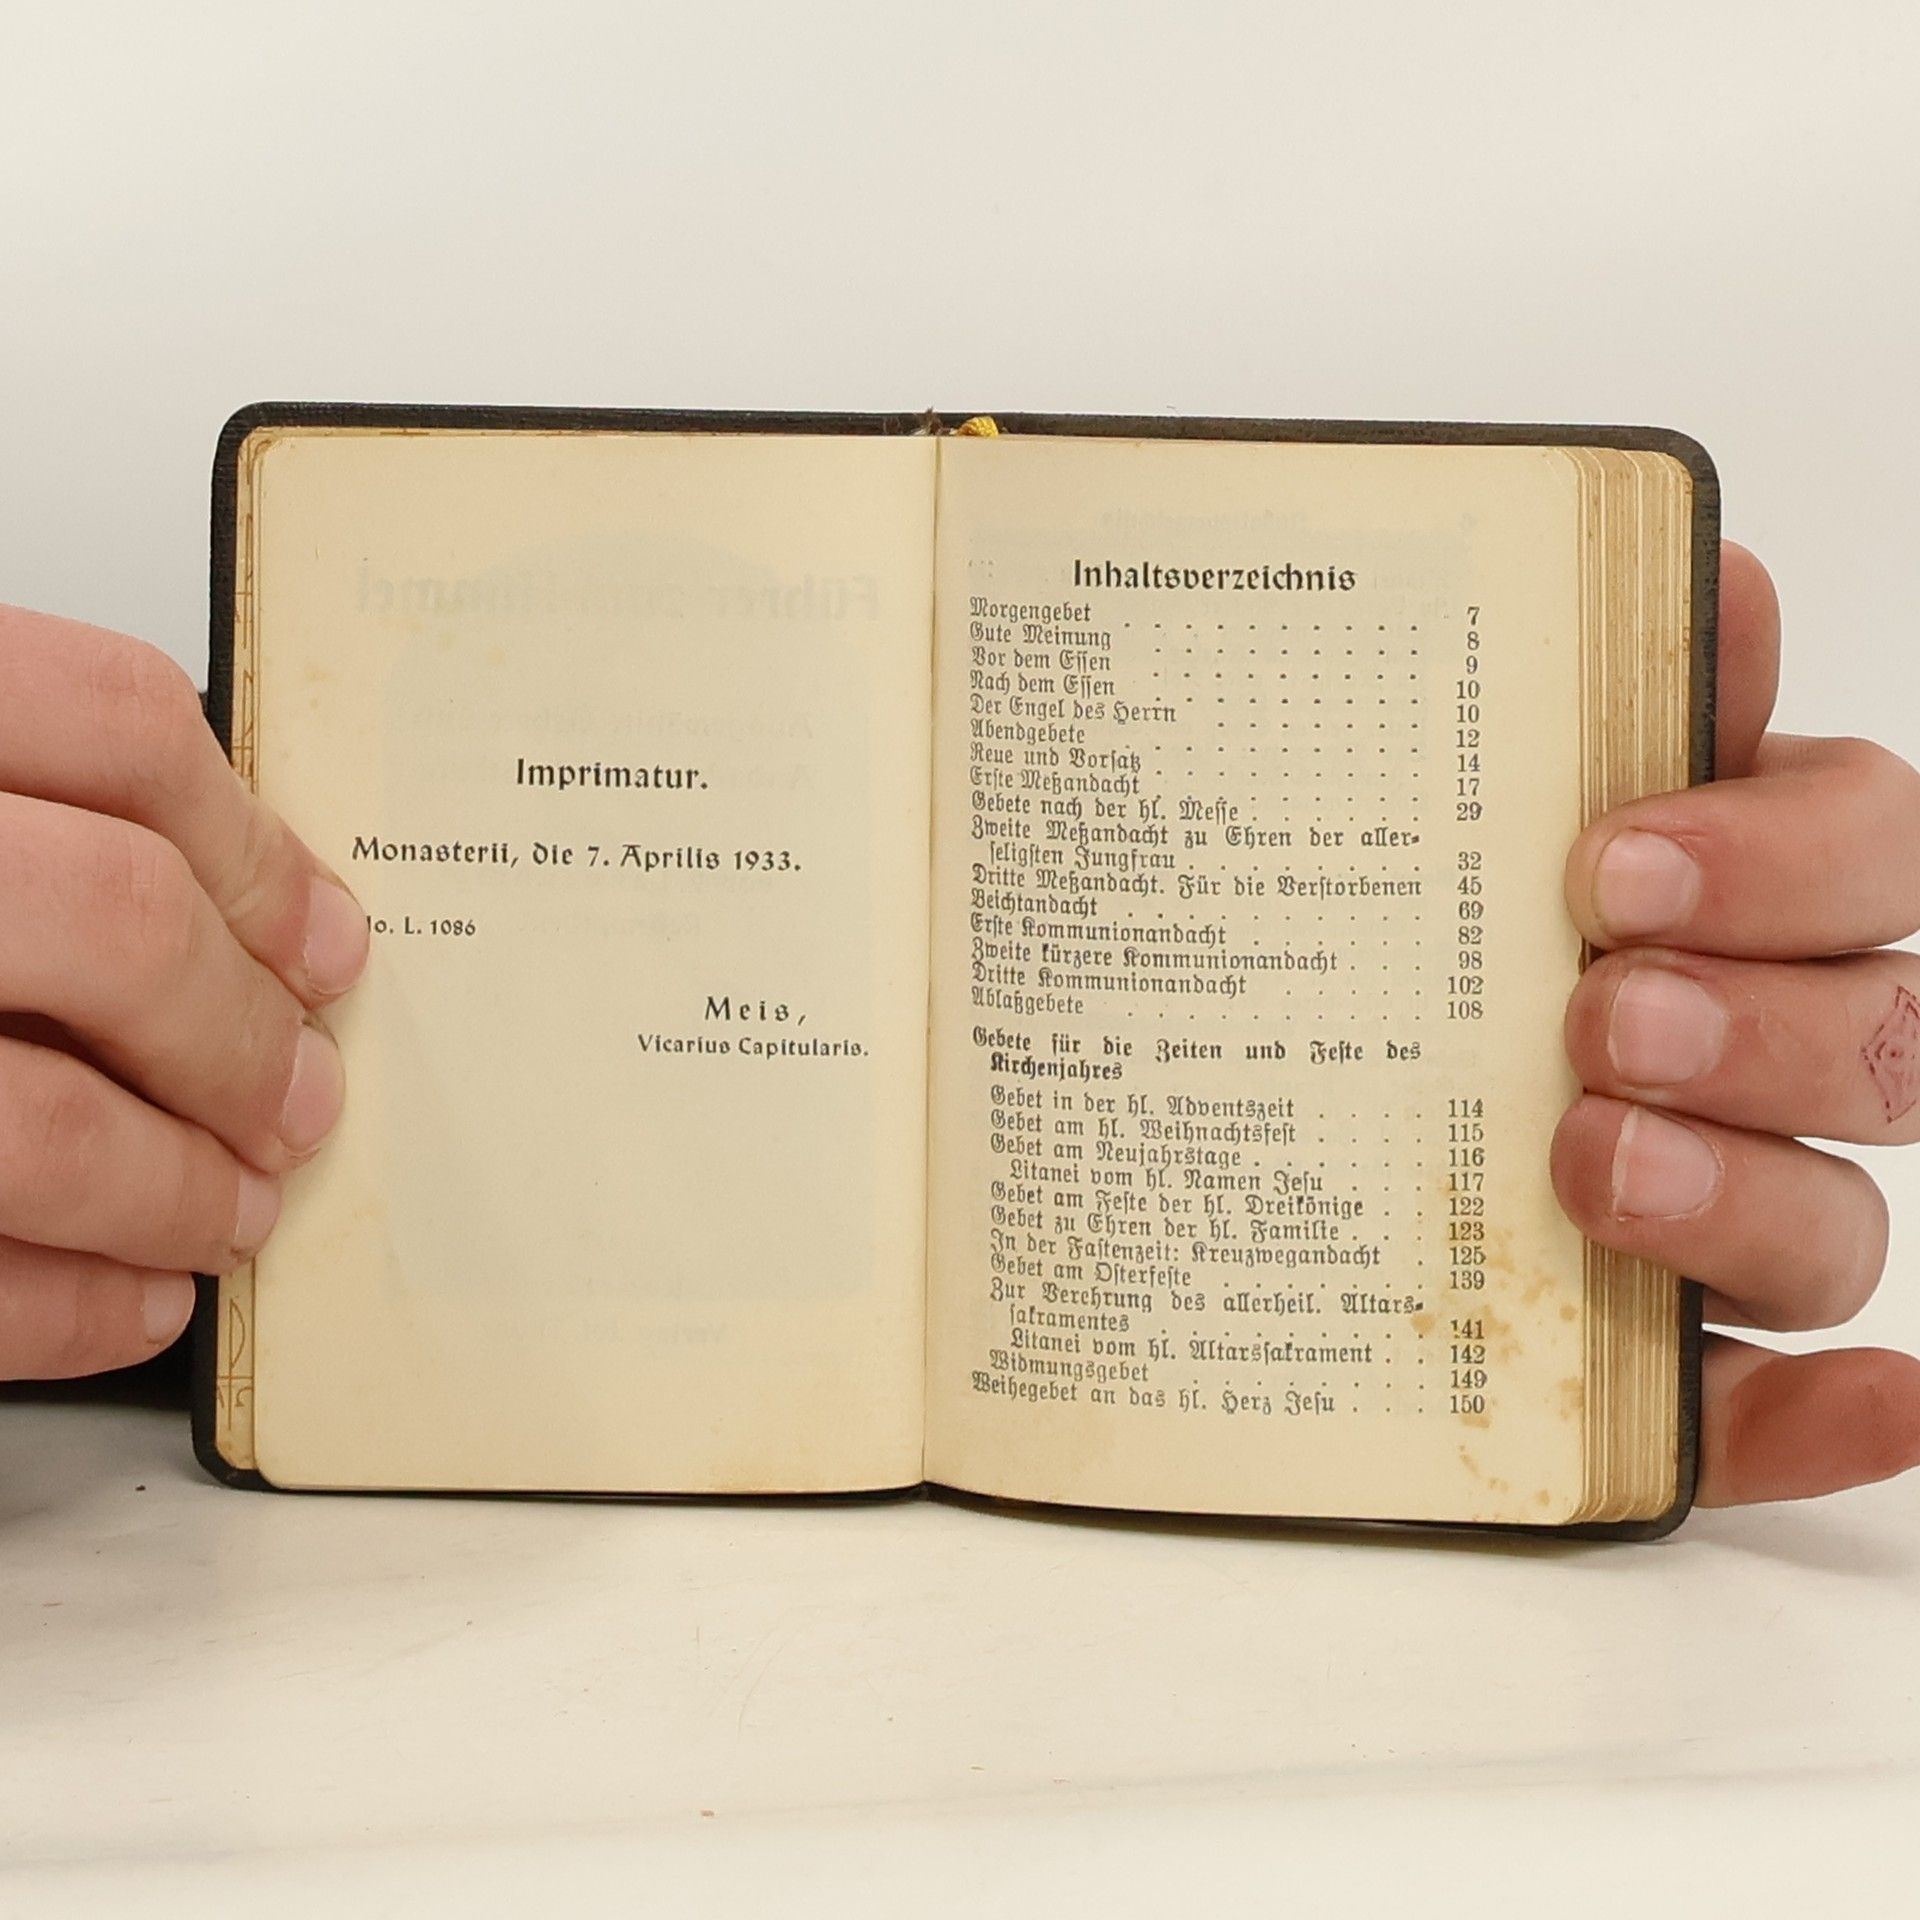 Imprimatur.
Monasterii, die 7. Aprilis 1933.
o. L. 1086
Meis,
Vicarius Capitularis.
Inhaltsverzeichnis
Morgengebet . . . . . . . . . . 7
Gute Meinung . . . . . . . . . 8
Vor dem Essen . . . . . . . . . 9
Nach dem Essen . . . . . . . . . 10
Der Engel des Herrn . . . . . . . 10
Abendgebete . . . . . . . . . 12
Reue und Vorsatz . . . . . . . . . 14
Erste Meßandacht . . . . . . . . . 17
Gebete nach der hl. Messe . . . . . . 29
Zweite Meßandacht zu Ehren der aller-
seligsten Jungfrau . . . . . . . . 32
Dritte Meßandacht. Für die Verstorbenen 45
Beichtandacht . . . . . . . . . . 69
Erste Kommunionandacht . . . . . . 82
Zweite kürzere Kommunionandacht . . . 98
Dritte Kommunionandacht . . . . . 102
Ablaßgebete . . . . . . . . . . 108
Gebete für die Zeiten und Feste des
Kirchenjahres
Gebet in der hl. Adventszeit . . . . 114
Gebet am hl. Weihnachtsfest . . . . 115
Gebet am Neujahrstage . . . . . . 116
Litanei vom hl. Namen Jesu . . . 117
Gebet am Feste der hl. Dreikönige . . 122
Gebet zu Ehren der hl. Familie . . . 123
In der Fastenzeit: Kreuzwegandacht . 125
Gebet am Osterfeste . . . . . . . 139
Zur Verehrung des allerheil. Altars-
sakramentes . . . . . . . . . 141
Litanei vom hl. Altarssakrament . . 142
Widmungsgebet . . . . . . . . 149
Weihegebet an das hl. Herz Jesu . . . 150